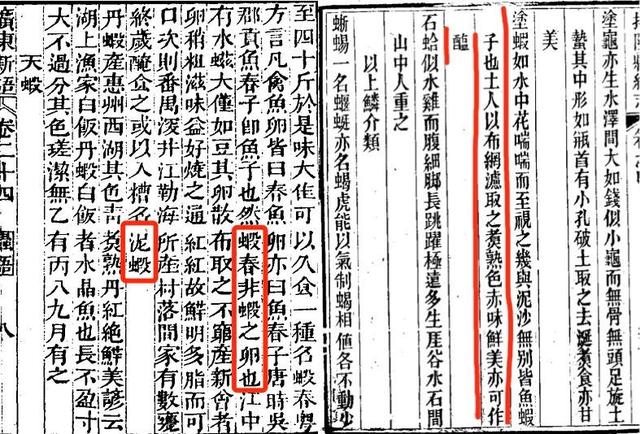 塗龜亦生水澤間大如錢似小龜而無骨無頭足旋土
蟄其中形如瓶首有小孔破土取之去涎煮食亦甘
美
塗蝦如水中花喘喘而至視之幾與泥沙無別皆魚蝦
子也土人以布網濾取之煑熟色赤味鮮美亦可作
醢
石蛤似水雞而腹細脚長跳躍極遠多生崖谷水石間
山中人重之
以上鱗介類
蜥蜴一名蝘蜓亦名蝎虎能以氣制蝎相値各不動少
至四十斤於是味大佳可以久食一種名蝦春粤
方言凡禽魚卵皆曰春魚卵亦曰魚春子唐時吳
郡貢魚春子卽魚子也然蝦春非蝦之卵也江中
有水蟣大僅如豆其卵散布取之不竭產新會者
卵稍粗滋味益好燒之通紅紅故鮮明多脂而可
口次則番禺深井江勒海所產村落間家有數甕
終歲醃食之或以入糟名泥蝦
丹蝦產惠州西湖其色青煑熟丹紅絶鮮美諺云
湖上漁家白飯丹蝦白飯者水晶魚也長不盈寸
大不過分其色瑳潔無乙有丙八九月有之
天蝦
廣東新語 卷二十四 蟲語 八